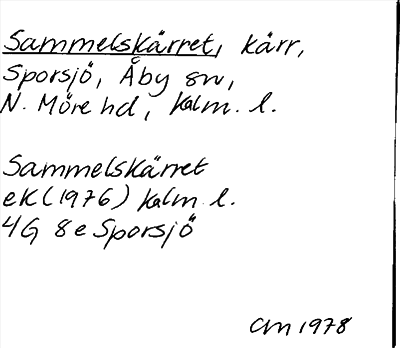 Sammelskärret, kärr,
Sporsjö, Åby sn,
N. Möre hd, Kalm. l.
Sammelskärret
eK (1976) Kalm. l.
4G 8e Sporsjö
CM 1978